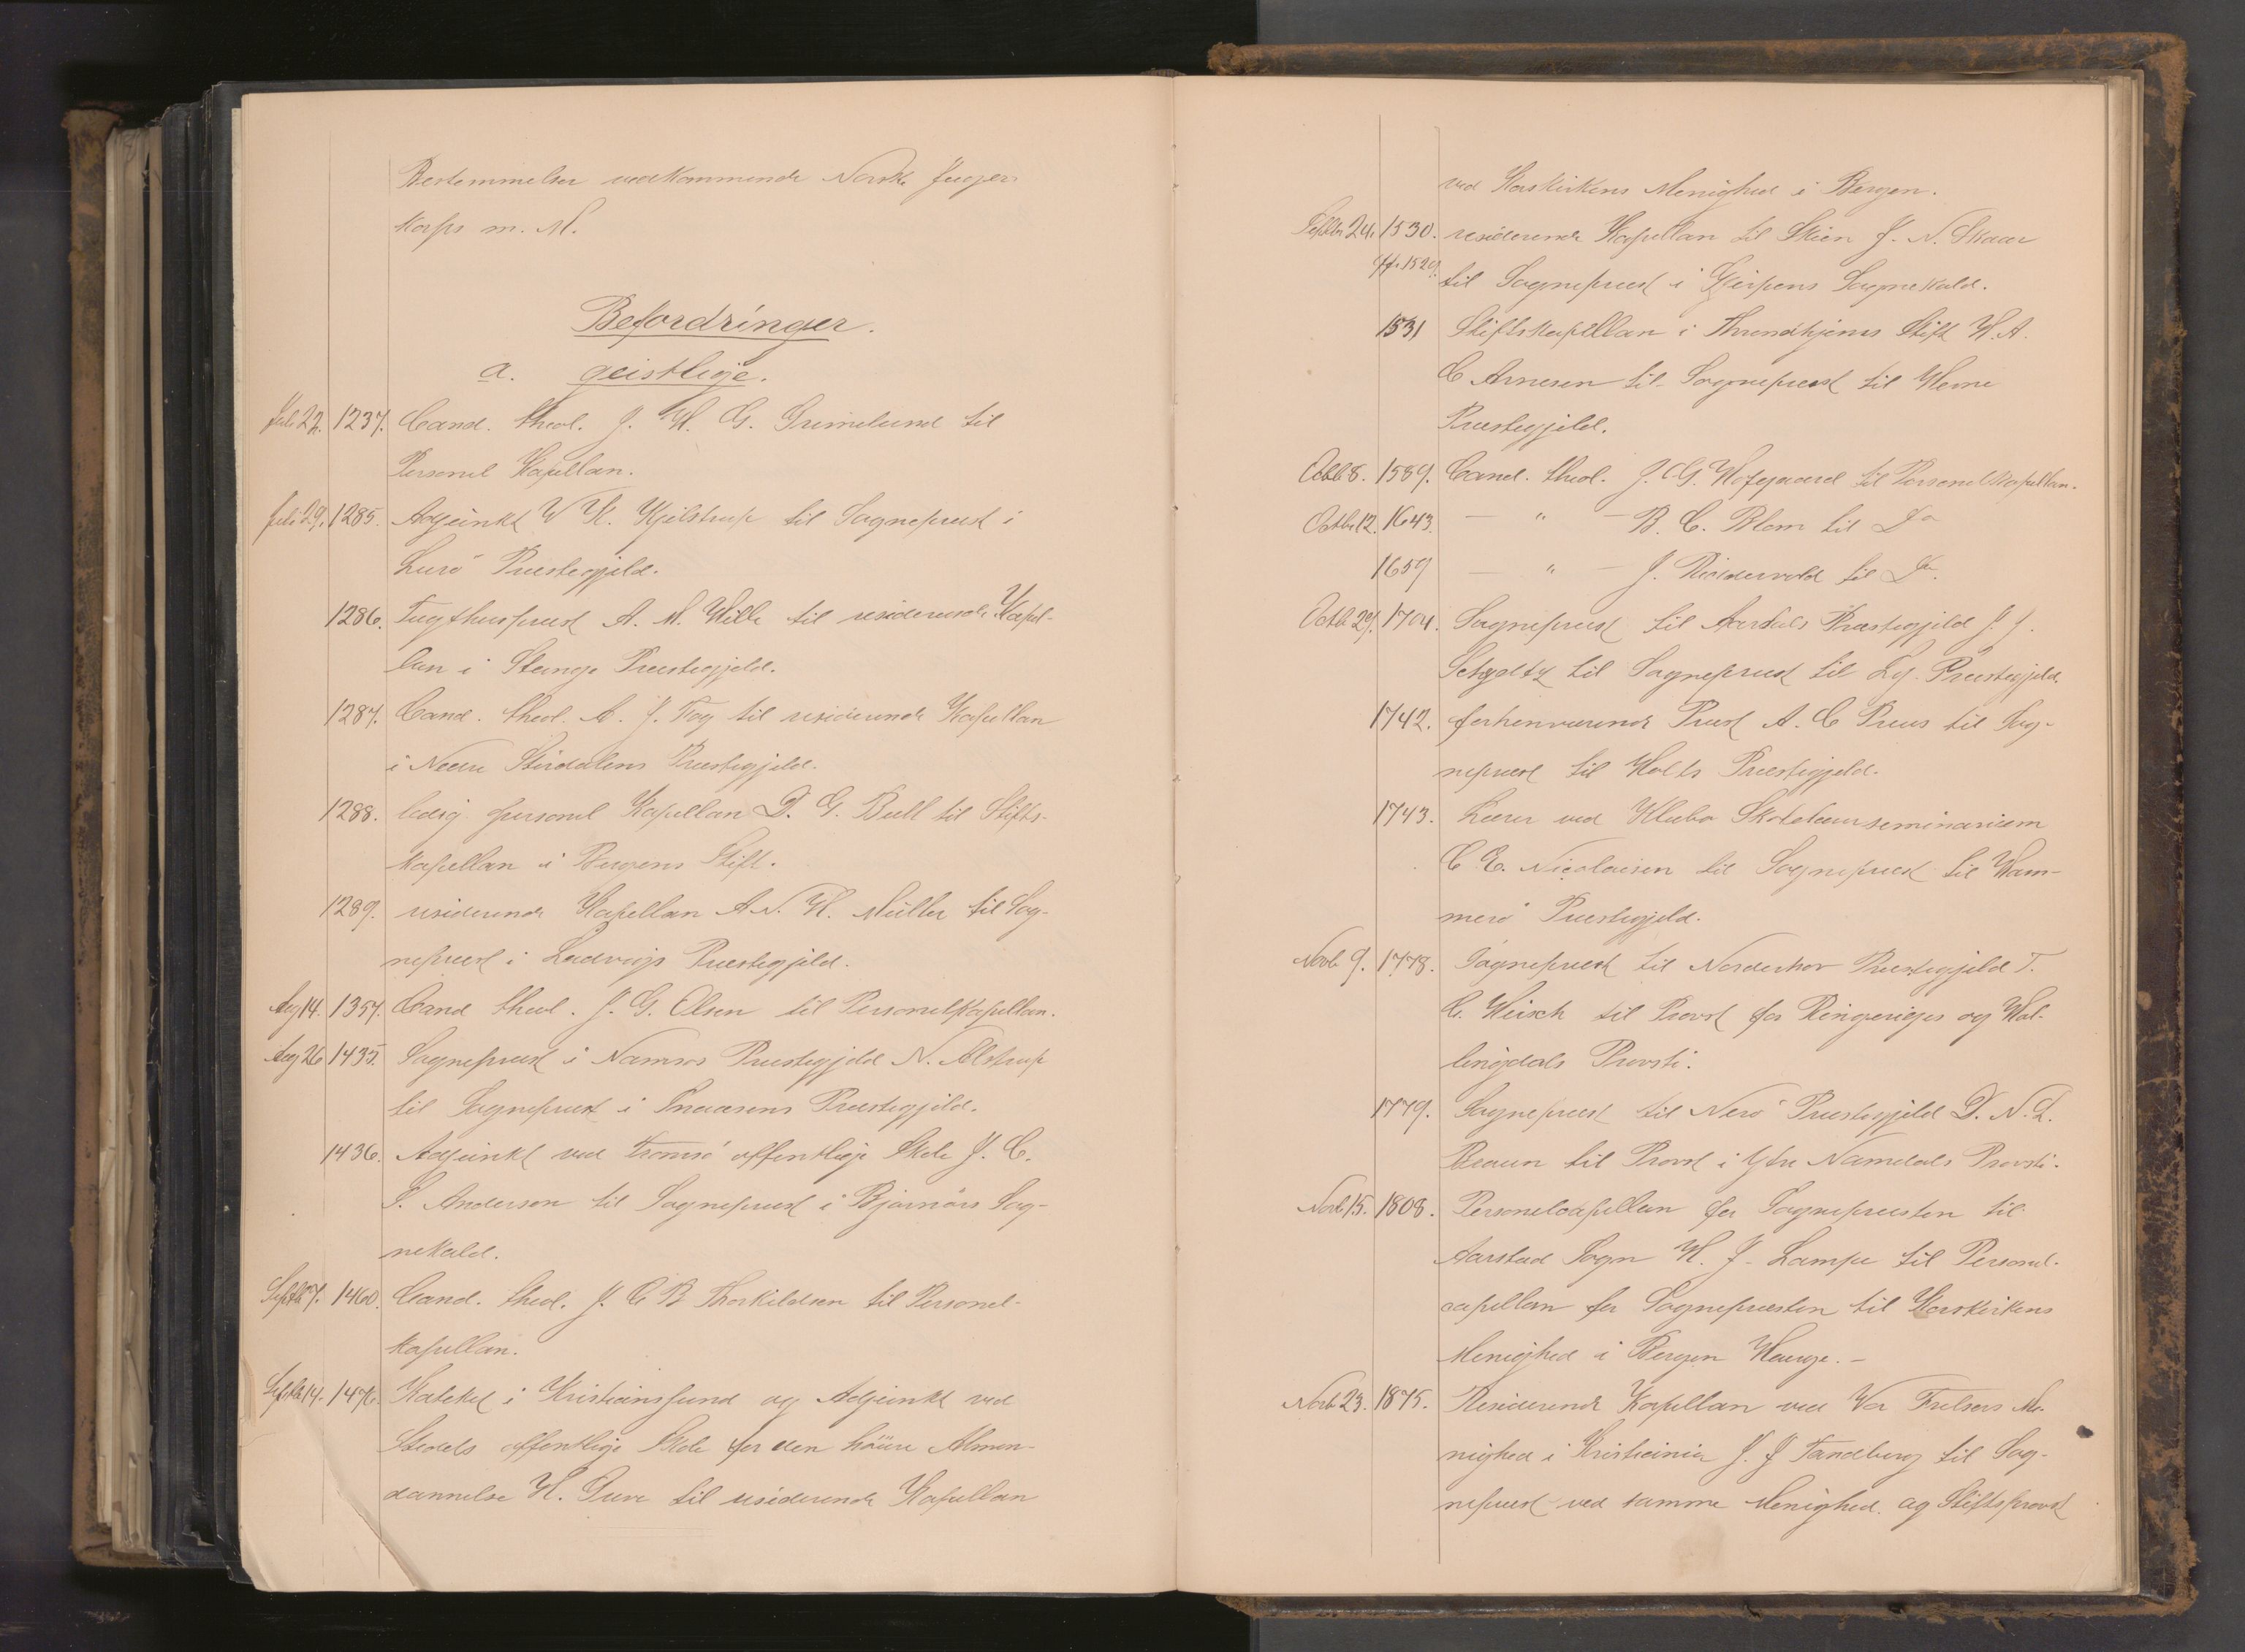 Bestemmelser vedkommende Norske Jæger
korps m. M.
Befordringer.
a. geistlige.
Juli 22. 1237. Cand. theol. J. H. G. Grimelund til
Personel Kapellan.
Juli 29. 1285. Adjunkt W H. Kjelstrup til Sognepræst i
Lurö Præstegjeld.
1286. Tugthuspræst A. M. Wille til residerende Kapel-
lan i Stange Præstegjeld.
1287. Cand. theol. A. J. Fog til residerende Kapellan
i Nedre Stördalens Præstegjeld.
1288. ledig personel Kapellan D. G. Bull til Stifts-
kapellan i Bergens Stift.
1289. residerende Kapellan A. N. H. Müller til Sog-
nepræst i Ladvigs Præstegjeld.
Aug 14. 1357. Cand theol. J. G. Olsen til Personelkapellan.
Aug 26 1435. Sognepræst i Namsos Præstegjeld N. Alstrup
til Sognepræst i Snaasens Præstegjeld.
1436. Adjunkt ved Tromsö offentlige Skole J. C.
S. Anderson til Sognepræst i Bjørnörs Sog-
nekald.
Septbr 7. 1460. Cand. theol. J. C B Thorkildsen til Personel-
kapellan.
Septbr 14. 1476. Kateket i Kristianssund og Adjunkt ved
Stedets offentlige Skole for den höiere Almen-
dannelse H. Gure til residerende Kapellan
ved Korskirkens Menighed i Bergen.
Septbr 24. 1530. residerende Kapellan til Skien J. N. Skaar
Jfr. 1529. til Sognepræst i Gjerpens Sognekald.
1531 Stiftskapellan i Throndhjems Stift H. A.
C Arnesen til Sognepræst til Hevne
Præstegjeld.
Octb 8. 1589. Cand. theol. J. G. Hofgaard til Personelkapellan.
Octbr 12. 1643. — " — B. C. Blom til Do
1659 — " — J. Riddervold til Do.
Octb 29. 1704. Sognepræst til Aardals Præstegjeld J. J.
Schydtz til Sognepræst til Ly Præstegjeld.
1742. forhenværende Præst A. C Preus til Sog-
nepræst til Holts Præstegjeld.
1743. Lærer ved Klæbo Skolelærerseminarium
C. E. Nicolaisen til Sognepræst til Ham-
merö Præstegjeld.
Novb 9. 1778. Sognepræst til Norderhov Præstegjeld T.
C. Hirsch til Provst for Ringeriges og Hal-
lingdals Provsti.
1779. Sognepræst til Nerö Præstegjeld D. N. L.
Beaun til Provst i Ytre Namdals Provsti.
Novb 15. 1808. Personelcapellan for Sognepræsten til
Aarstad Sogn H. J. Lampe til Personel-
capellan for Sognepræsten til Korskirkens
Menighed i Bergen Hauge. —
Novb 23. 1875. Residerende Kapellan ved Vor Frelsers Me-
nighed i Kristiania J. J Tandberg til Sog-
nepræst ved samme Menighed og Stiftsprovst